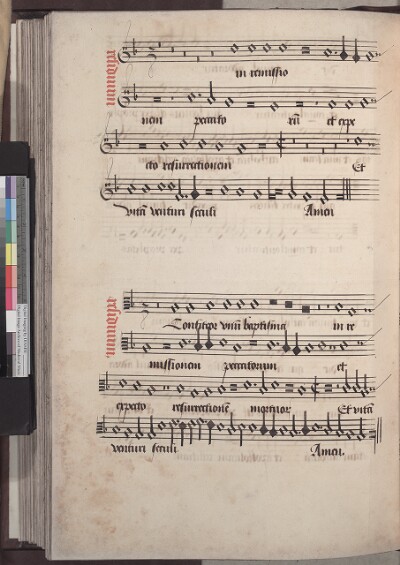 in remissio
nem peccato rū et expe
cto resurrectionem Et
vitā venturi seculi Amen
Confiteor unū baptisma in re
missionem peccatorum et
expecto resurrectionē mortuor Et vitā
venturi seculi Amen